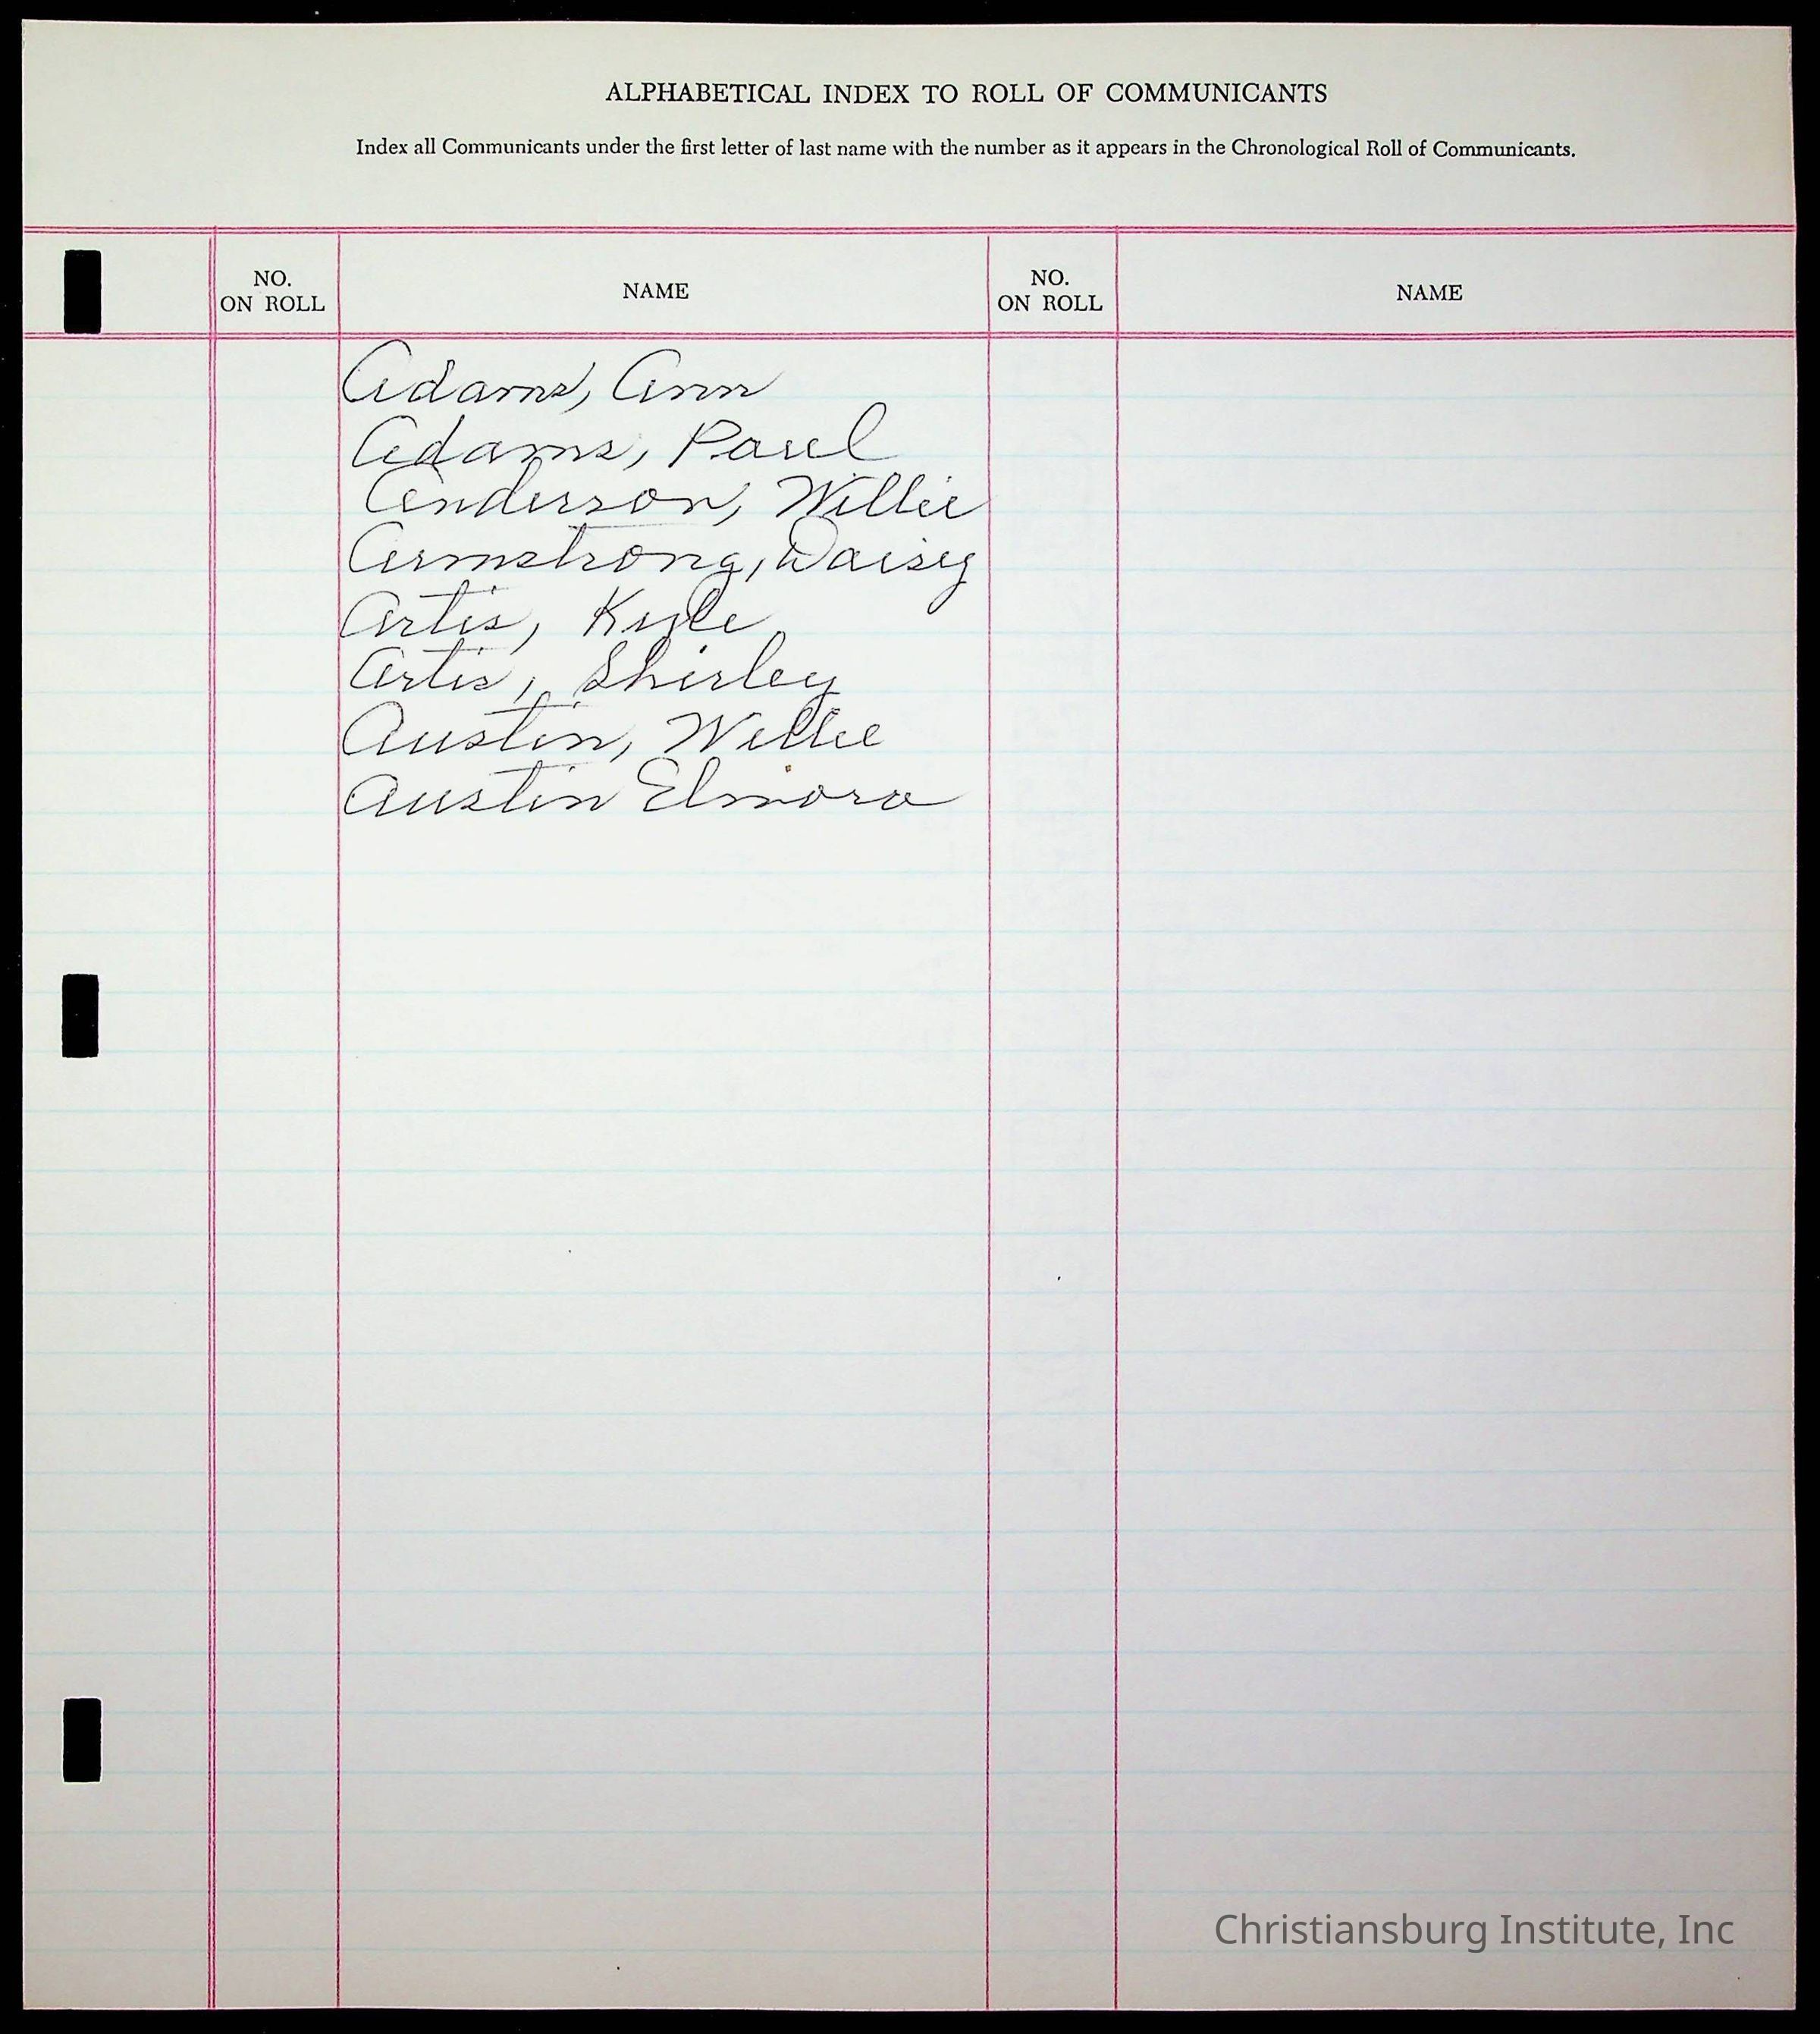 ALPHABETICAL INDEX TO ROLL OF COMMUNICANTS
Index all Communicants under the first letter of last name with the number as it appears in the Chronological Roll of Communicants.
NO. ON ROLL NAME NO. ON ROLL NAME
Adams, Ann
Adams, Paul
Anderson, Willie
Armstrong, Daisy
Artis, Kyle
Artis, Shirley
Austin, Willie
Austin Elmora
Christiansburg Institute, Inc